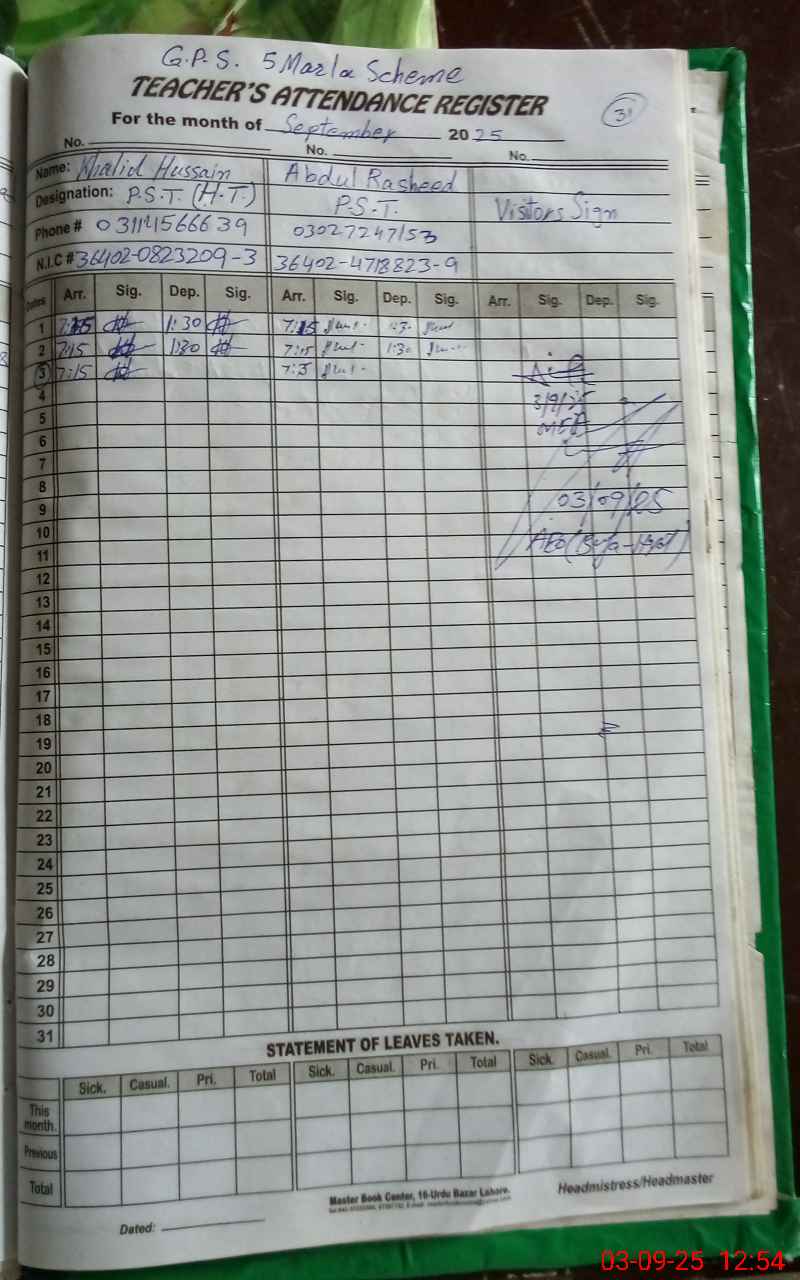 G.P.S. 5 Marla Scheme
TEACHER'S ATTENDANCE REGISTER
For the month of September 2025
No. No. No.
Name: Khalid Hussain Abdul Rasheed
Designation: P.S.T. (H.T.) P.S.T. Visitors Sign
Phone # 03027247153
N.I.C # 36402-0823209-3 36402-4718823-9
Dates Arr. Sig. Dep. Sig. Arr. Sig. Dep. Sig. Arr. Sig. Dep. Sig.
1 7:15 1:30 7:15 1:3
2 7:15 1:30 7:15 1:30
3 7:15
4 3/9/25
5 MEA
6
7
8
9 03/09/25
10
11 AEO
12
13
14
15
16
17
18
19
20
21
22
23
24
25
26
27
28
29
30
31
STATEMENT OF LEAVES TAKEN.
Sick. Casual. Pri. Total Sick. Casual. Pri. Total Sick. Casual. Pri. Total
This month.
Previous
Total
Master Book Center, 16-Urdu Bazar Lahore.
Headmistress/Headmaster
Dated:
03-09-25 12:54